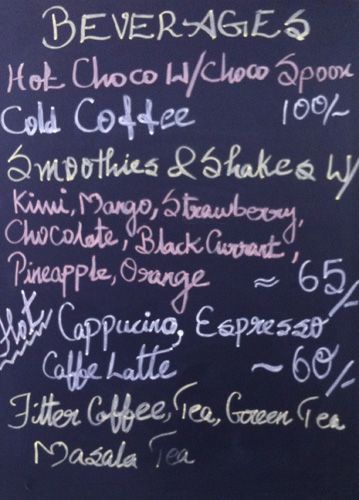 BEVERAGES
Hot Choco W/Choco Spoon
Cold Coffee 100/-
Smoothies & Shakes W/
Kiwi, Mango, Strawberry,
Chocolate, Black Currant,
Pineapple, Orange ≈ 65/
Hot Cappucino, Espresso
Caffe Latte ~60/-
Filter Coffee, Tea, Green Tea
Masala Tea